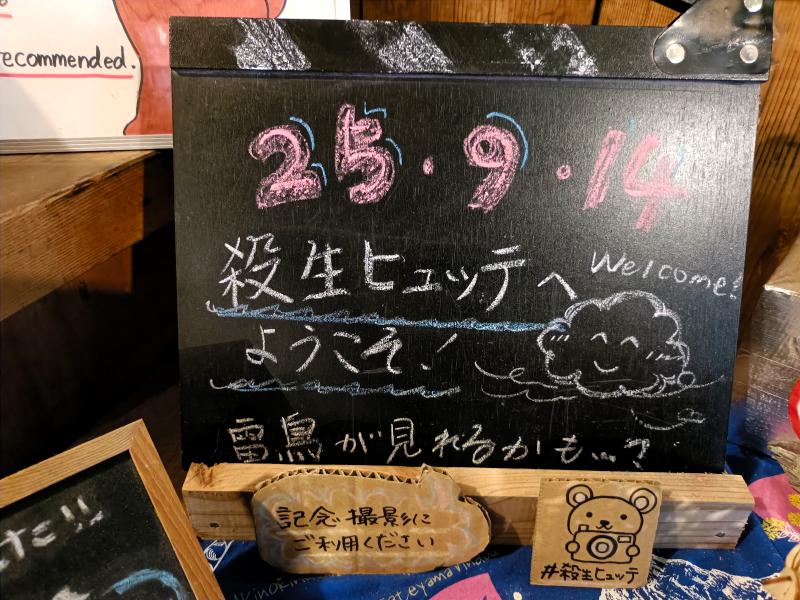 recommended.
25.9.14
殺生ヒュッテへ
Welcome!
ようこそ!
雷鳥が見れるかも...?
記念撮影に
ご利用ください
#殺生ヒュッテ